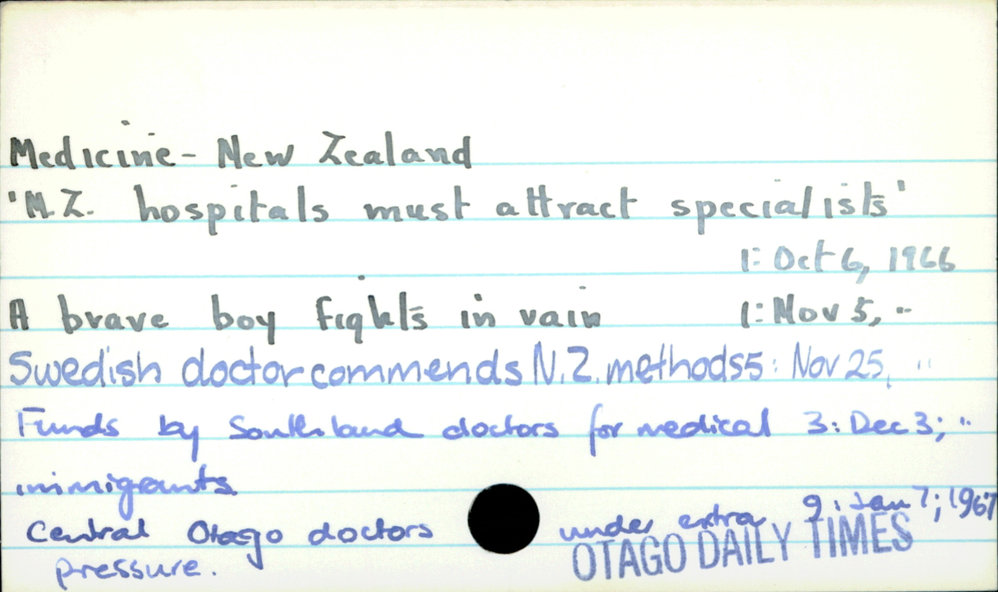 Medicine - New Zealand
'N.Z. hospitals must attract specialists'
1: Oct 6, 1966
A brave boy fights in vain 1: Nov 5, "
Swedish doctor commends N.Z. methods 5: Nov 25, "
Funds by Southland doctors for medical 3: Dec 3; "
immigrants
Central Otago doctors under extra 9: Jan 7; 1967
pressure.
OTAGO DAILY TIMES